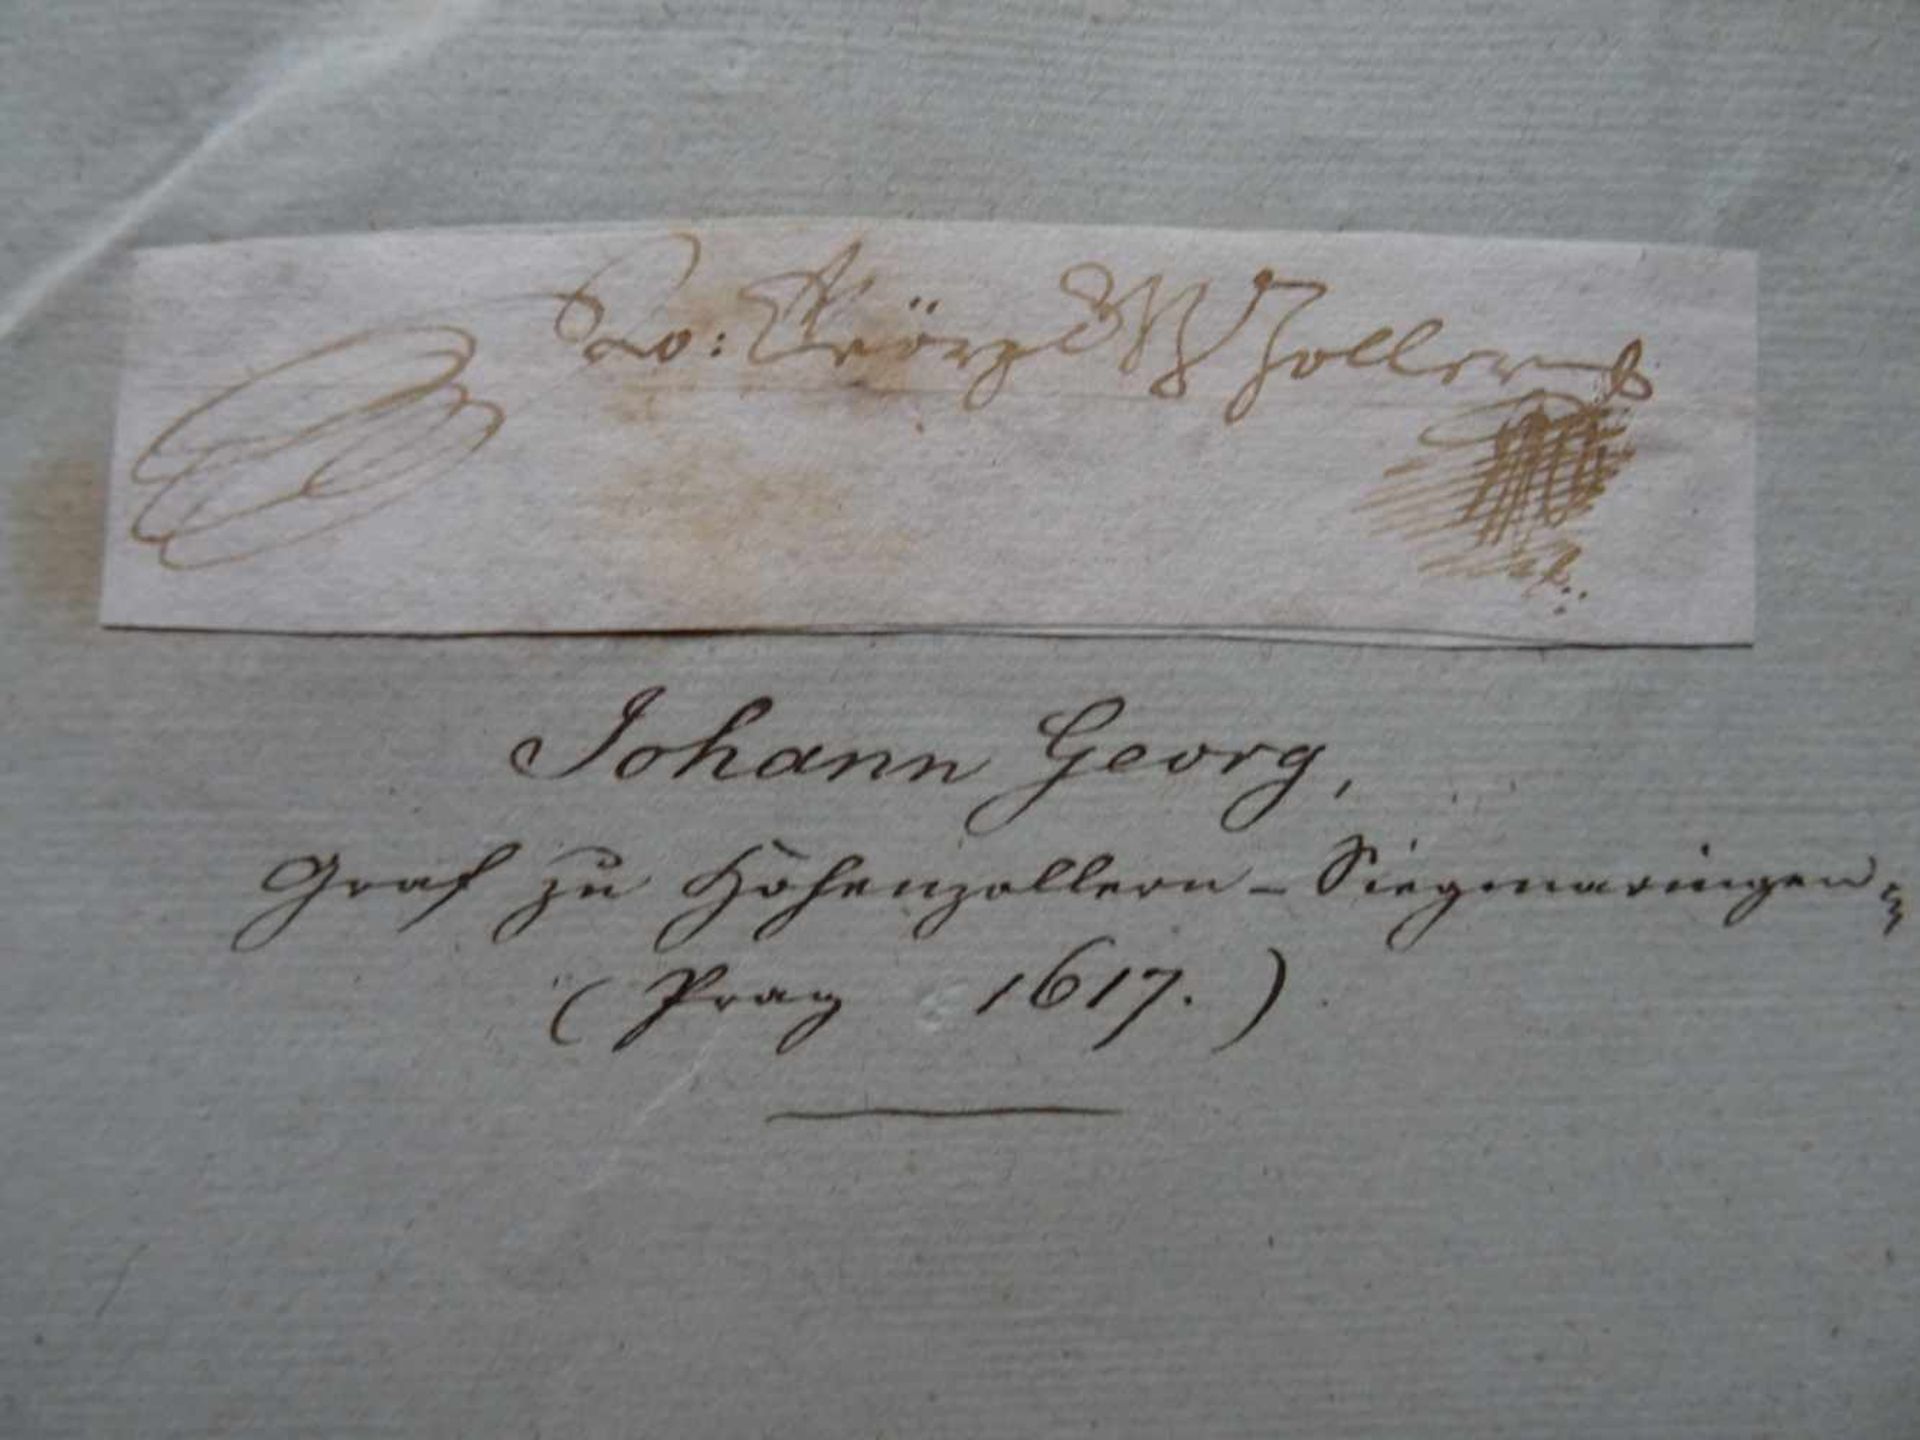 Geörg Zollern
Johann Georg,
Graf zu Hohenzollern - Siegmaringen
(Prag 1617.)